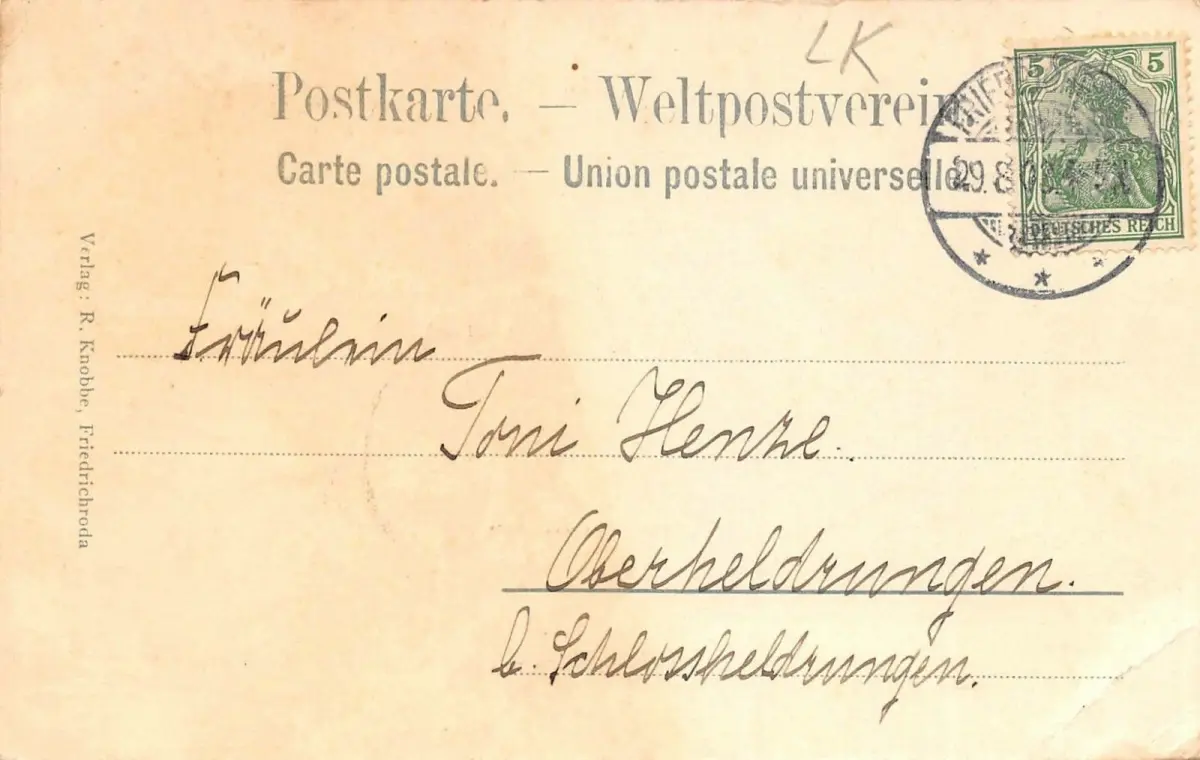 LK
Postkarte. — Weltpostverein
Carte postale. — Union postale universelle
5 5
29.8.
DEUTSCHES REICH
Verlag: R. Knobbe, Friedrichroda
Fräulein
Toni Henze.
Oberheldrungen.
b. Schlossheldrungen.